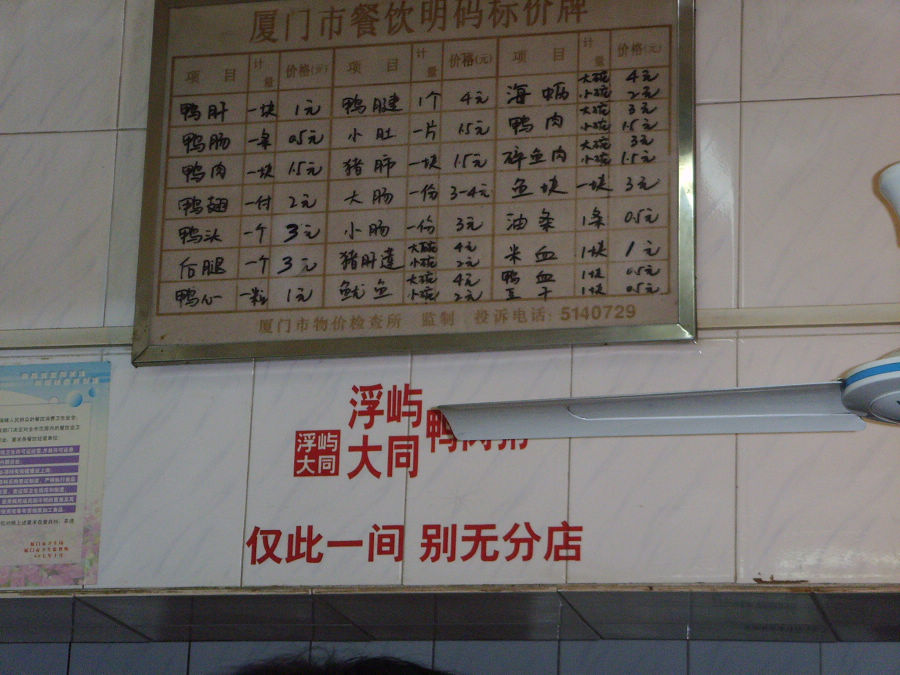 厦门市餐饮明码标价牌
项目 计量 价格(元) 项目 计量 价格(元) 项目 计量 价格(元)
鸭肝 一块 1元 鸭腱 1个 4元 海蛎 大碗 4元 小碗 2元
鸭肠 一条 0.5元 小肚 一片 1.5元 鸭肉 大碗 3元 小碗 1.5元
鸭肉 一块 1.5元 猪肺 一块 1.5元 碎鱼肉 大碗 3元 小碗 1.5元
鸭翅 一付 2元 大肠 一份 3-4元 鱼块 一块 3元
鸭头 一个 3元 小肠 一份 3元 油条 1条 0.5元
后腿 一个 3元 猪肝连 大碗 4元 小碗 2元 米血 1块 1元
鸭心 一粒 1元 鱿鱼 大碗 4元 小碗 2元 鸭血 1块 0.5元 豆干 1块 0.5元
厦门市物价检查所 监制 投诉电话: 5140729
浮屿
大同
浮屿
大同
鸭肉粥
仅此一间 别无分店